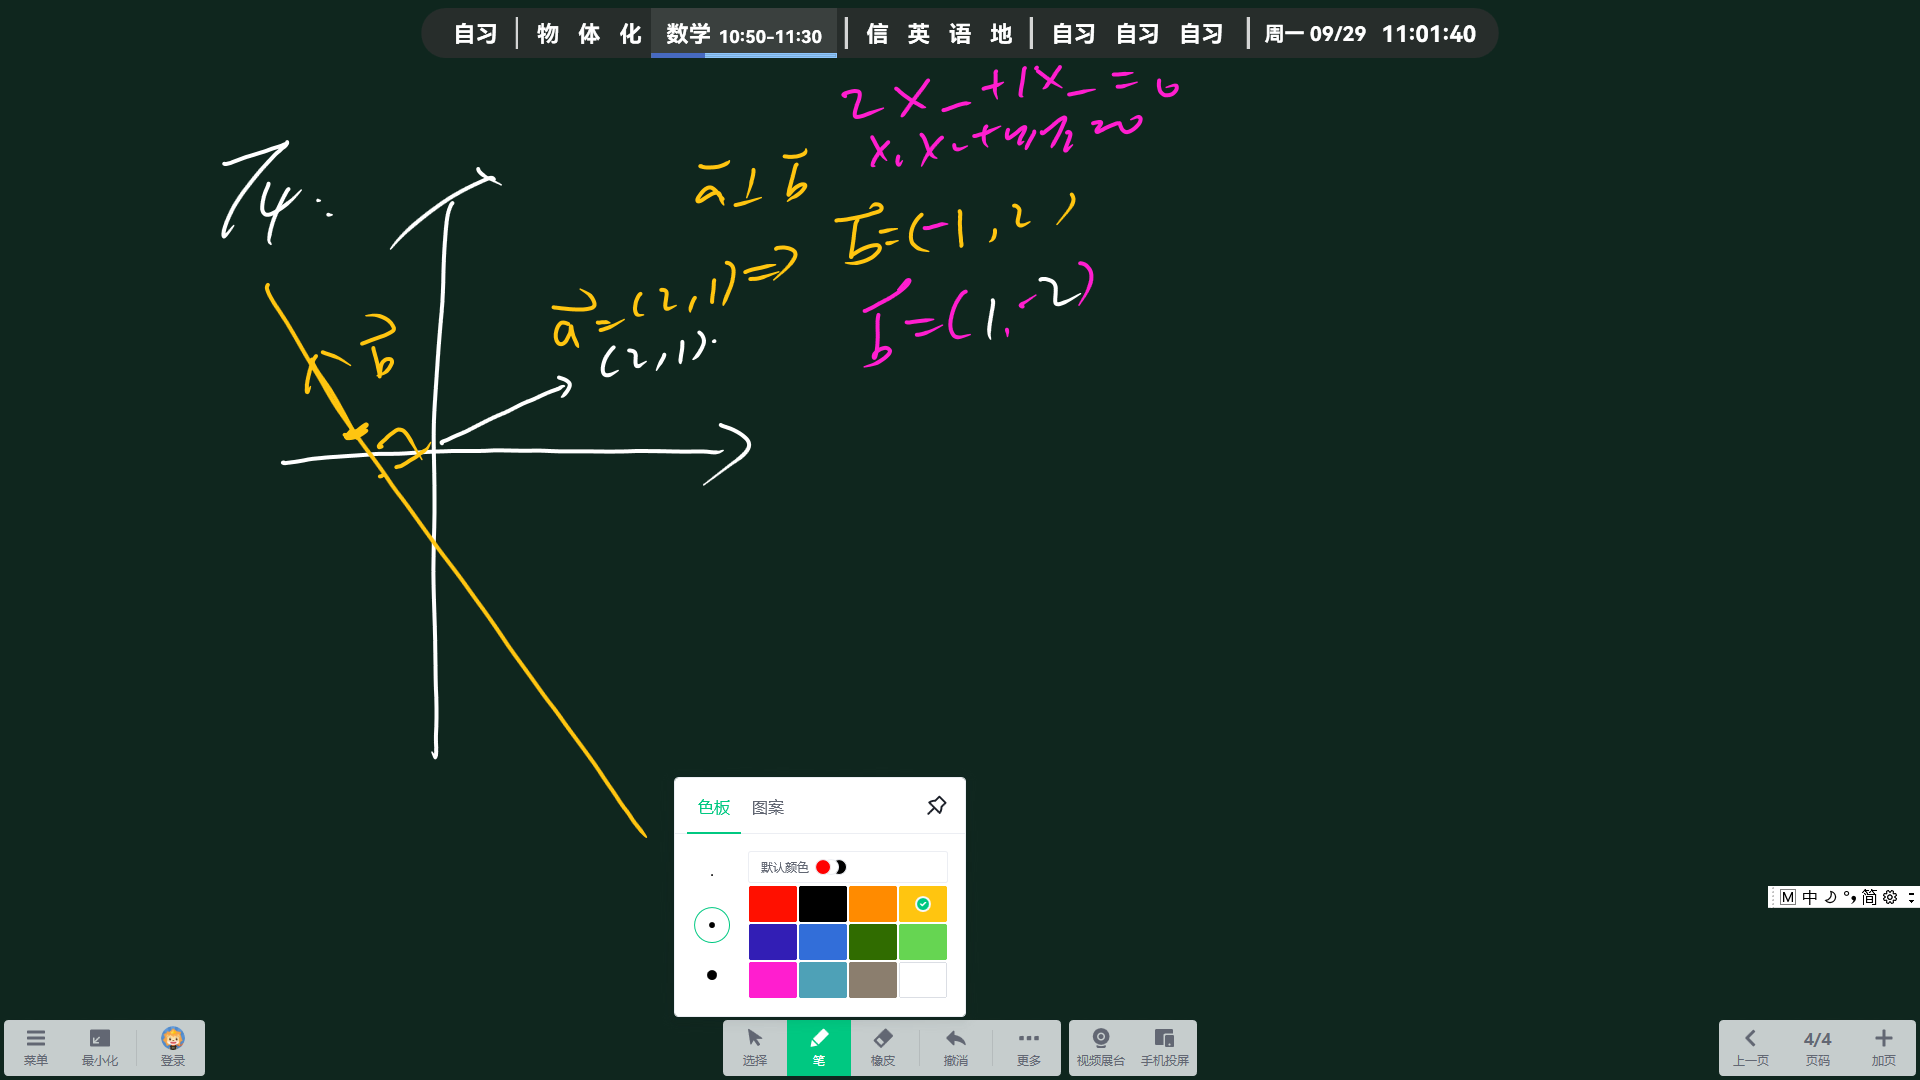 自习 | 物 体 化 数学 10:50-11:30 | 信 英 语 地 | 自习 自习 自习 | 周一 09/29 11:01:40
2×_+1×_=0
x₁x₂+y₁y₂=0
T4:
a⊥b
b=(-1,2)
a=(2,1)⇒
b=(1,-2)
(2,1).
b
色板 图案
默认颜色
M 中 简
菜单 最小化 登录
选择 笔 橡皮 撤消 更多
视频展台 手机投屏
4/4
上一页 页码 加页